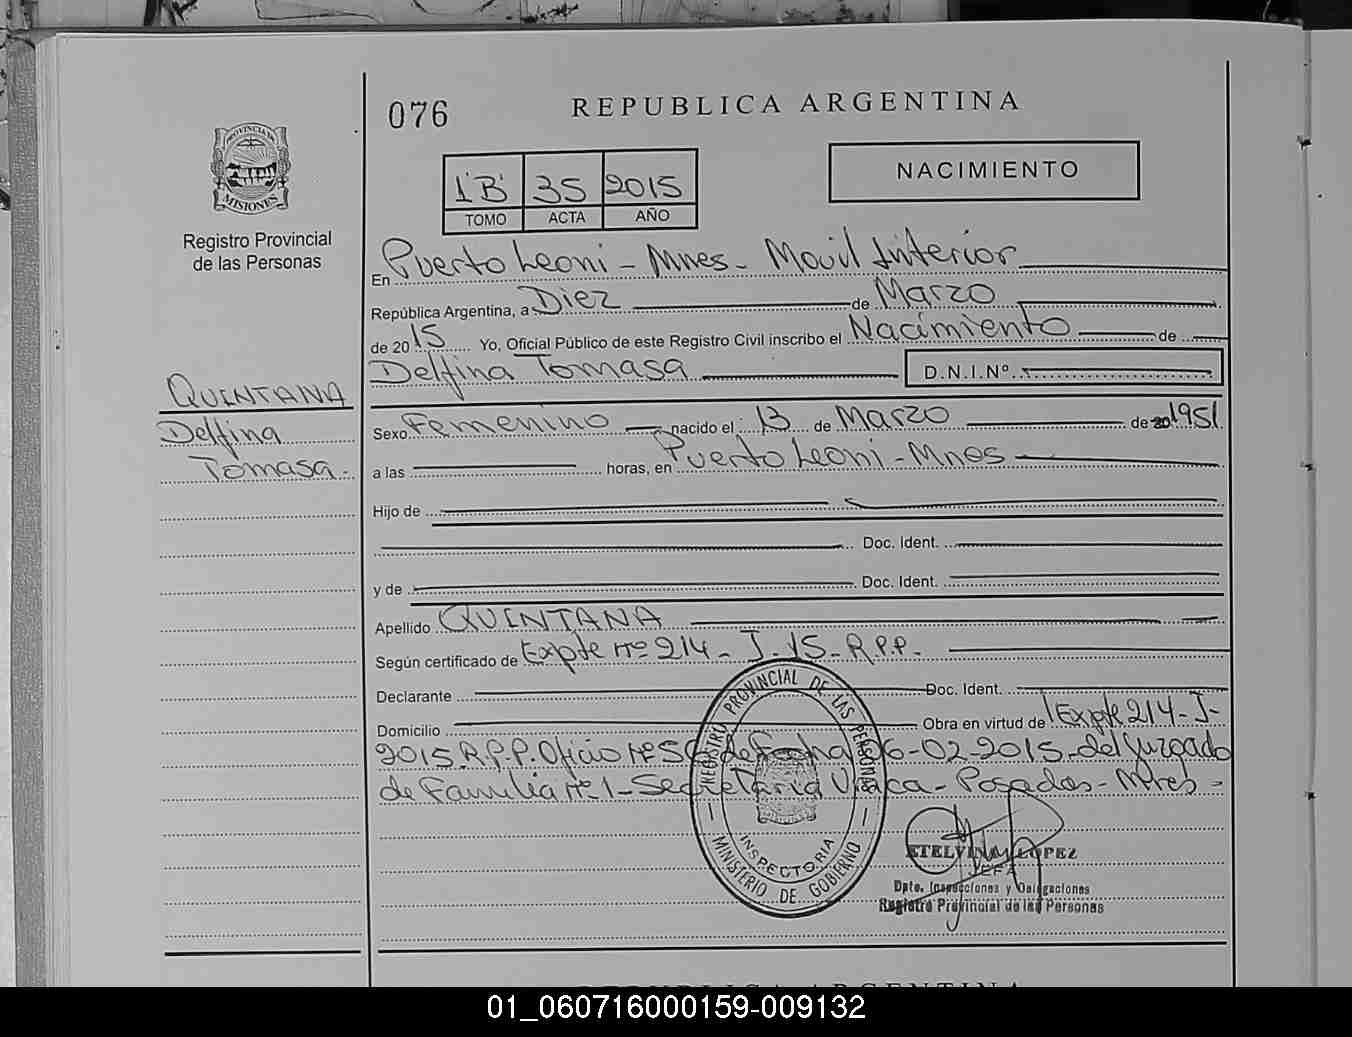 076
REPUBLICA ARGENTINA
PROVINCIA DE
MISIONES
Registro Provincial
de las Personas
NACIMIENTO
1"B" 35 2015
TOMO ACTA AÑO
En Puerto Leoni - Mnes - Movil Interior
República Argentina, a Diez de Marzo
de 2015 Yo, Oficial Público de este Registro Civil inscribo el Nacimiento de
Delfina Tomasa D.N.I.Nº
QUINTANA
Delfina
Tomasa.
Sexo Femenino nacido el 13 de Marzo de 20 1951
a las horas, en Puerto Leoni - Mnes
Hijo de
Doc. Ident.
y de Doc. Ident.
Apellido QUINTANA
Según certificado de Expte nº 214 - J - 15 - R.P.P.
Declarante Doc. Ident.
Domicilio Obra en virtud de Expte 214 - J -
2015. R.P.P. Oficio nº de Fecha 06-02-2015 - del Juzgado
de Familia nº 1 - Secretaria Unica - Posadas - Mnes -
REGISTRO PROVINCIAL DE LAS PERSONAS
INSPECTORIA
MINISTERIO DE GOBIERNO
ETELVINA LOPEZ
JEFA
Dpto. Inspecciones y Delegaciones
Registro Provincial de las Personas
REPUBLICA ARGENTINA
01_060716000159-009132